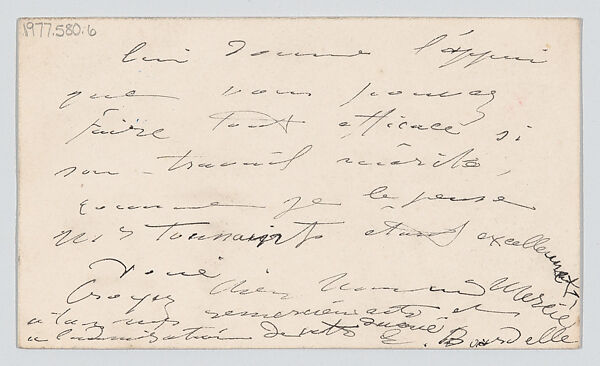 1977.580.6
lui donne l'appui
que vous pouvez
Faire tout efficace si
son travail mérite,
comme je le pense
étant excellement
doué
Croyez cher Mercié
à tous mes remerciements et
à l'admiration de votre dévoué E. Bourdelle